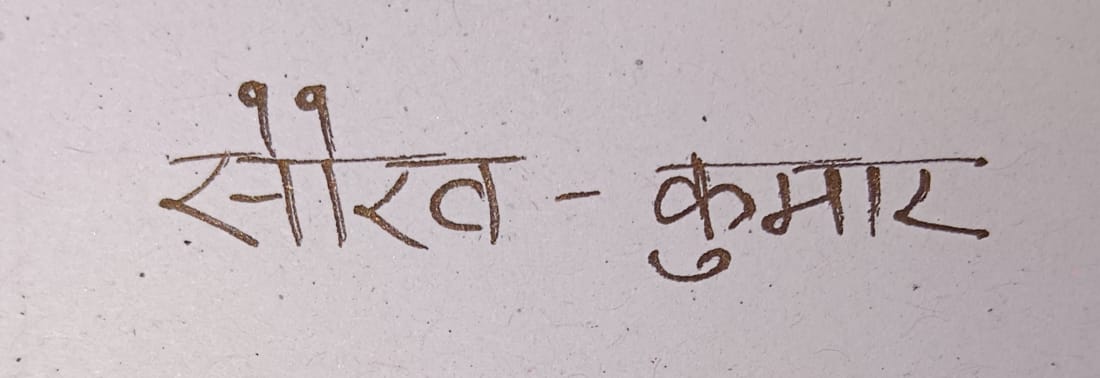 सौरव - कुमार